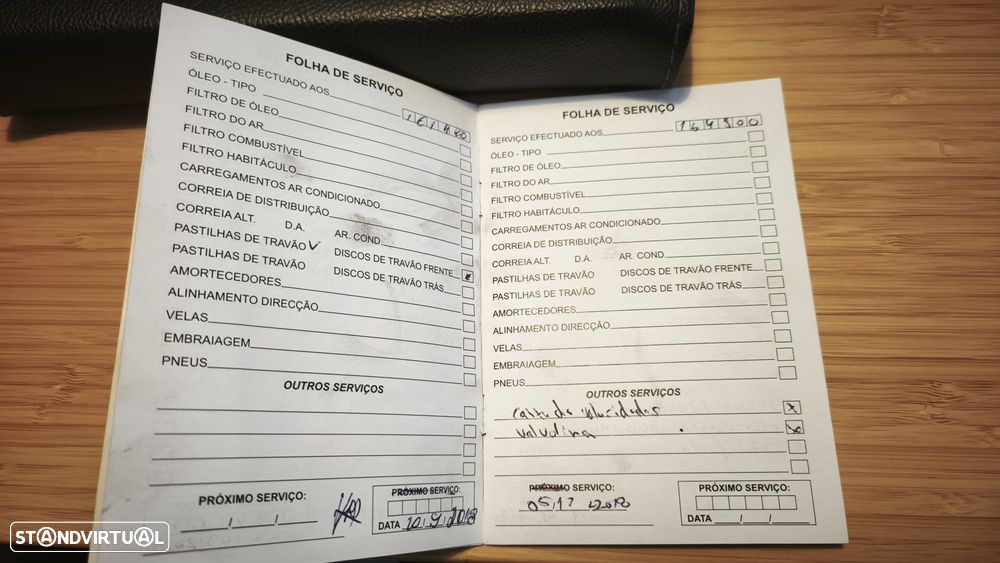 FOLHA DE SERVIÇO
SERVIÇO EFECTUADO AOS
ÓLEO - TIPO
FILTRO DE ÓLEO
FILTRO DO AR
FILTRO COMBUSTÍVEL
FILTRO HABITÁCULO
CARREGAMENTOS AR CONDICIONADO
CORREIA DE DISTRIBUIÇÃO
CORREIA ALT. D.A. AR. COND.
PASTILHAS DE TRAVÃO ✓ DISCOS DE TRAVÃO FRENTE x
PASTILHAS DE TRAVÃO DISCOS DE TRAVÃO TRÁS
AMORTECEDORES
ALINHAMENTO DIRECÇÃO
VELAS
EMBRAIAGEM
PNEUS
OUTROS SERVIÇOS
PRÓXIMO SERVIÇO:
PRÓXIMO SERVIÇO:
DATA 20 9 2018
FOLHA DE SERVIÇO
SERVIÇO EFECTUADO AOS 164500
ÓLEO - TIPO
FILTRO DE ÓLEO
FILTRO DO AR
FILTRO COMBUSTÍVEL
FILTRO HABITÁCULO
CARREGAMENTOS AR CONDICIONADO
CORREIA DE DISTRIBUIÇÃO
CORREIA ALT. D.A. AR. COND.
PASTILHAS DE TRAVÃO DISCOS DE TRAVÃO FRENTE
PASTILHAS DE TRAVÃO DISCOS DE TRAVÃO TRÁS
AMORTECEDORES
ALINHAMENTO DIRECÇÃO
VELAS
EMBRAIAGEM
PNEUS
OUTROS SERVIÇOS
caixa de velocidades x
valvulina x
PRÓXIMO SERVIÇO:
05, 12 2018
PRÓXIMO SERVIÇO:
DATA
STANDVIRTUAL